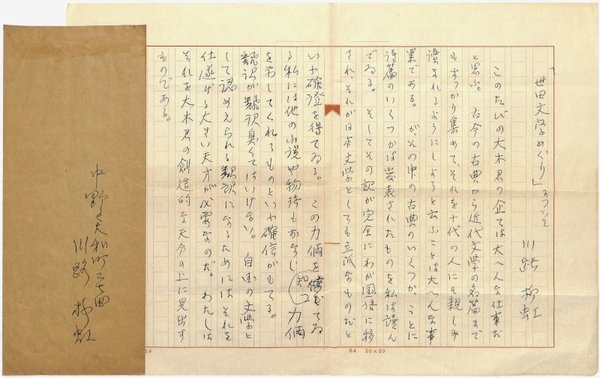 「世田文学めぐり」について
川路柳虹
このたびの大木君の企ては大へんな仕事だ
と思ふ。古今の古典から近代文学の名篇まで
もすつかり集めて、それを十代の人にも親しみ
読まれるようにしようと云ふことは大へんな事
業である。がその中の古典のいくつか、ことに
詩篇のいくつかは発表されたものを私は読ん
でゐる。そしてその訳が完全にわが国語に移
され、それが日本文学としても立派なものだと
いふ確證を得てゐる。この力価を信じてゐ
る私には他の小説や物語もおなじ力価
を示してくれるものといふ確信がもてる。
翻訳が翻訳臭くてはいけない。自由の文学と
して認めえられる翻訳になるためにはそれを
仕遂げる大きい天才が必要なのだ。わたしは
それを大木君の創造的な天分の上に見出す
ものである。
A4 20×20
中野区大和町二七四
川路柳虹